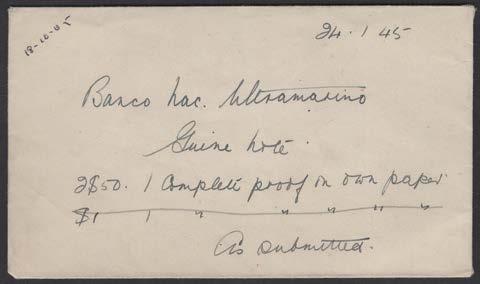 18-10-45
24.1 45
Banco Nac. Ultramarino
Guine Note
2$50. 1 Complete proof on own paper
$1 1 " " " " "
As submitted.